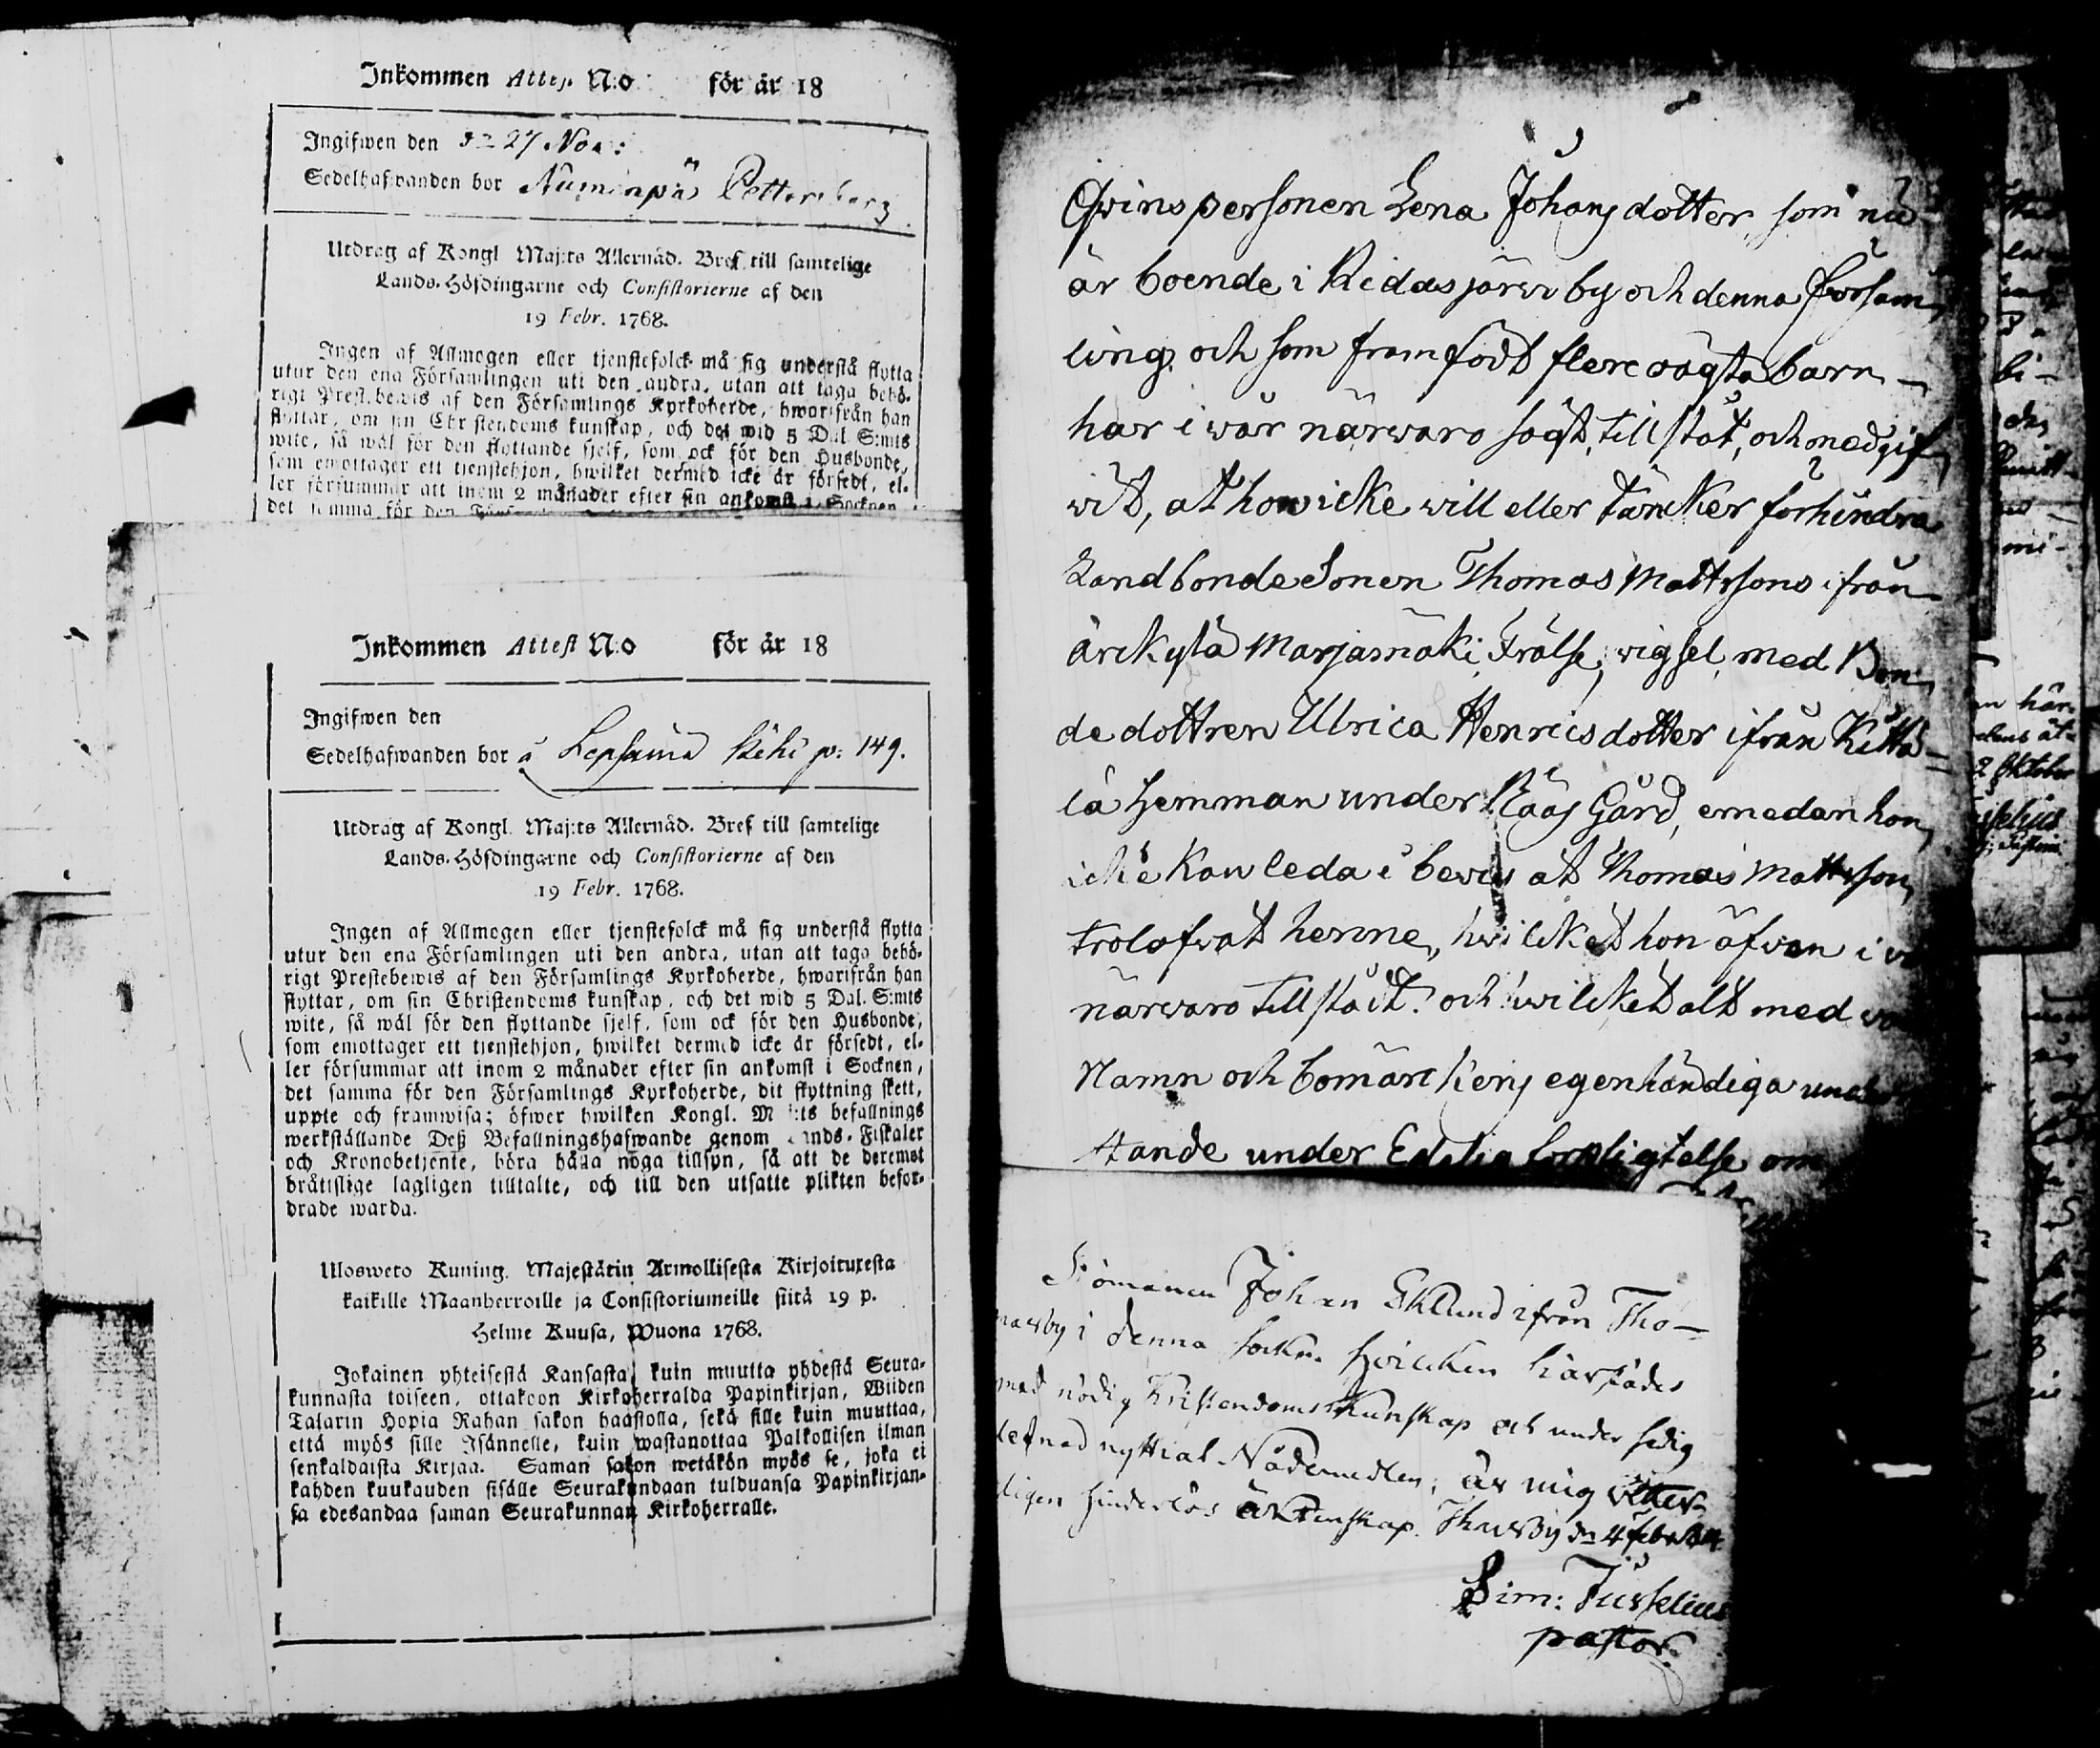 Inkommen Attest N:o för år 18
Ingifwen den d= 27 Nov:
Sedelhafwanden bor Numinpä Pettersberg
Utdrag af Kongl Maj:ts Allernåd. Bref till samtelige
Lands-Höfdingarne och Consistorierne af den
19 Febr. 1768.
Ingen af Allmogen eller tjenstefolck må sig understå flytta
utur den ena Församlingen uti den andra, utan att taga behö-
rigt Prest.bewis af den Församlings Kyrkoherde, hwarifrån han
flyttar, om sin Christendoms kunskap, och det wid 5 Dal S:mts
wite, så wäl för den flyttande sjelf, som ock för den Husbonde,
som emottager ett tjenstehjon, hwilket dermed icke är försedt, el-
ler försummar att inom 2 månader efter sin ankomst i Socknen,
det samma för den
Inkommen Attest N:o för år 18
Ingifwen den
Sedelhafwanden bor å Lepsämä Kihi p: 149.
Utdrag af Kongl. Maj:ts Allernåd. Bref till samtelige
Lands-Höfdingarne och Consistorierne af den
19 Febr. 1768.
Ingen af Allmogen eller tjenstefolck må sig understå flytta
utur den ena Församlingen uti den andra, utan att taga behö-
rigt Prestebewis af den Församlings Kyrkoherde, hwarifrån han
flyttar, om sin Christendoms kunskap, och det wid 5 Dal. S:mts
wite, så wäl för den flyttande sjelf, som ock för den Husbonde,
som emottager ett tjenstehjon, hwilket dermed icke är försedt, el-
ler försummar att inom 2 månader efter sin ankomst i Socknen,
det samma för den Församlings Kyrkoherde, dit flyttning skett,
uppte och framwisa; öfwer hwilken Kongl. M :ts befallnings
werkställande Deß Befallningshafwande genom Lands-Fiskaler
och Kronobetjente, böra hålla noga tillsyn, så att de deremot
bråtislige lagligen tilltalte, och till den utsatte plikten befor-
drade warda.
Ulosweto Kuning. Majestätin Armollisesta Kirjoituxesta
kaikille Maanherroille ja Consistoriumeille siitä 19 p.
Helme Kuusa, Wuona 1768.
Jokainen yhteisestä Kansasta, kuin muutta yhdestä Seura-
kunnasta toiseen, ottakoon Kirkoherralda Papinkirjan, Wiiden
Talarin Hopia Rahan sakon haastolla, sekä sille kuin muuttaa,
että myös sille Isännelle, kuin wastanottaa Palkollisen ilman
senkaldaista Kirjaa. Saman sakon wetäkön myös se, joka ei
kahden kuukauden sisälle Seurakundaan tulduansa Papinkirjan-
sa edesandaa saman Seurakunnan Kirkoherralle.
Qwinspersonen Lena Johansdotter, som nu
är boende i Ridasjärwi by och denna försam,
ling, och som framfödt flere oägta barn,
har i wår närwaro sagt, tillståt, och medgif,
wit, at hon icke will eller täncker förhindra
Landbonde Sonen Thomas Mattssons ifrån
ärckylä Marjamäki Frälse, wigsel med Bon,
de dottren Ulrica Henricsdotter ifrån Kitta=
lä Hemman under Nääs Gård, emedan hon,
icke kan leda i bewis at Thomas Mattsson,
trolofwat henne, hwilcket hon äfwen i w
närwaro tillstådt. och hwilcket alt med wå
Namn och bomärckens egenhändiga under
tande under Edelig förpligtelse om
Sjömannen Johan Eklund ifrån Tho-
marby i denna sockn. hwilcken härstädes
med nödig Kristendoms Kunskap och under sedig
lefnad nyttiat Nådemedlen; är mig witter-
ligen hinderlös till äktenskap. Thusby dn 4 febr 24.
Sim: Tusselius
pastor.
än här
2 Oktober